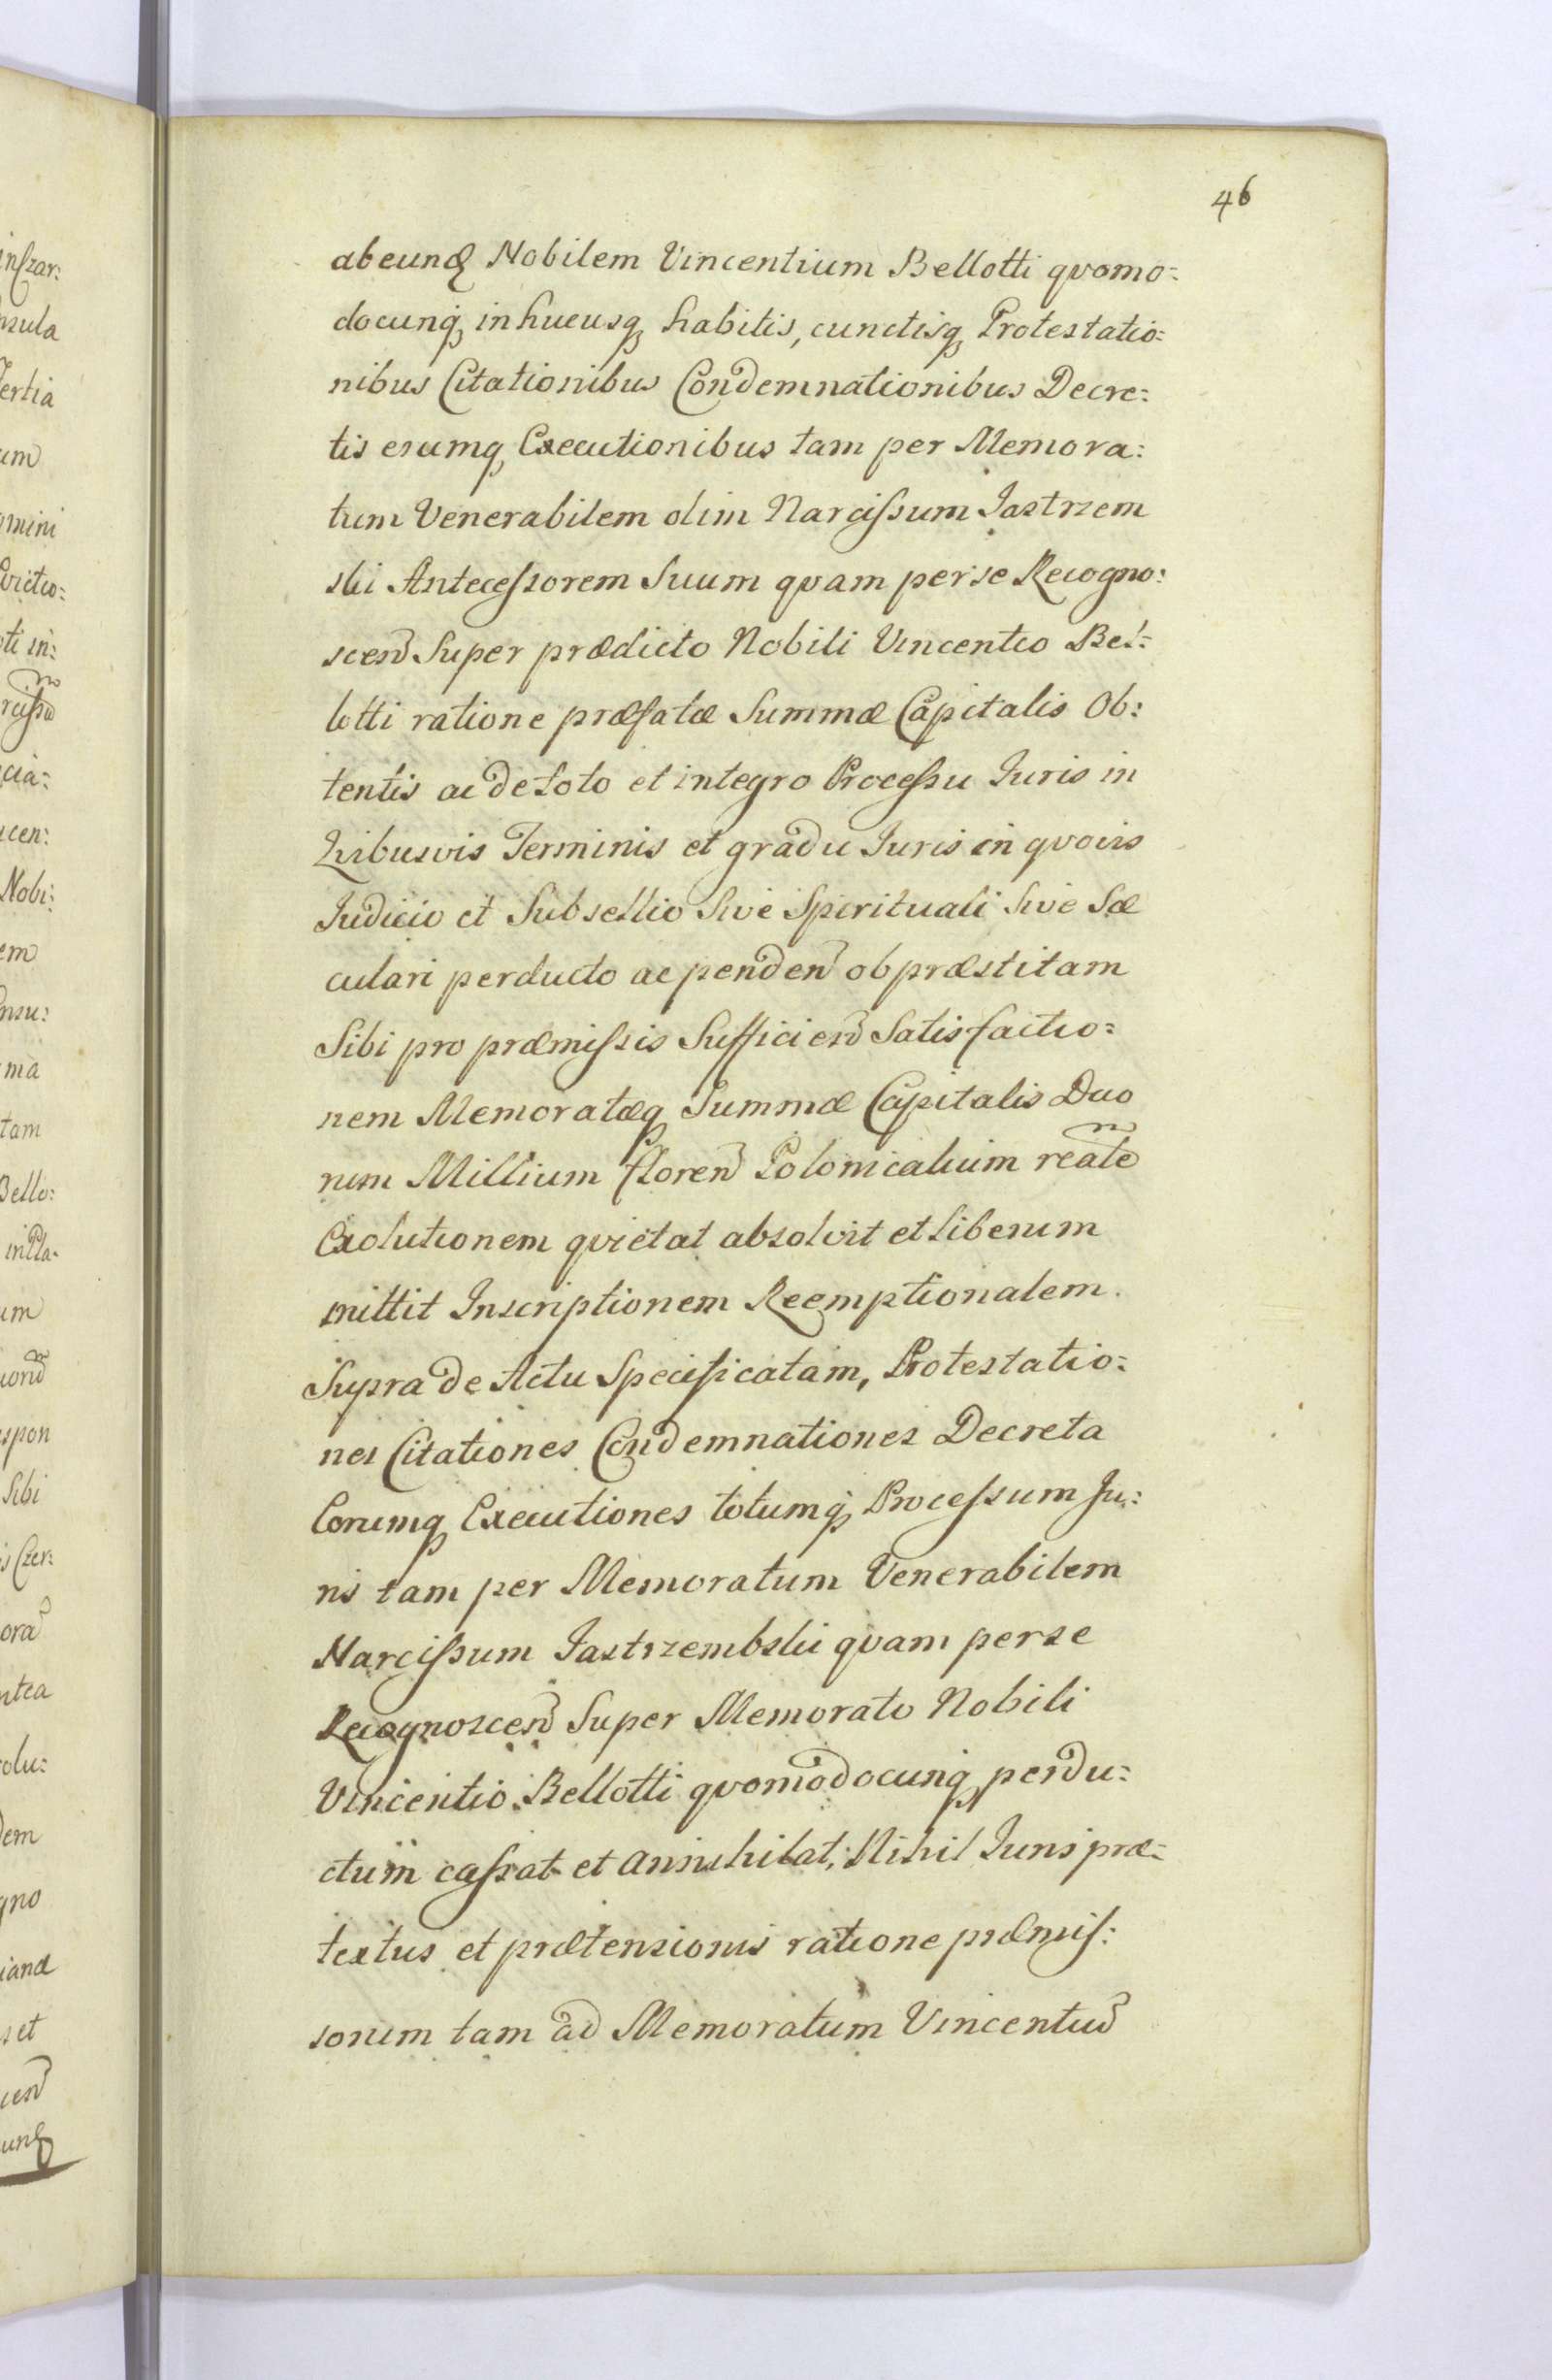 46
ab eund Nobilem Vincentium Bellotti qvomo:
docunq̢ in hucusq̢ habitis, cunctisq̢ Protestatio:
nibus Citationibus Condemnationibus Decre:
tis erumq̢ Executionibus tam per Memora:
tum Venerabilem olim Narcissum Jastrzem
ski Antecessorem Suum qvam per se Recogno:
scen̄ Super prædicto Nobili Vincentio Bel:
lotti ratione præfatæ Summæ Capitalis Ob:
tentis ac de toto et integro Processu Juris in
Qvibusvis Terminis et gradu Juris in qvovis
Judicio et Subsellio Sive Spirituali Sive Sæ
culari perducto ac penden̄ ob præstitam
Sibi pro præmissis Sufficien̄ Satisfactio:
nem Memoratæq̢ Summæ Capitalis Duo
rum Millium floren̄ Polonicalium reale̅
Exolutionem qvietat absolvit et liberum
mittit Inscriptionem Reemptionalem.
Supra de Actu Specificatam, Protestatio:
nes Citationes Condemnationes Decreta
Eorumq̢ Executiones totumq̢ Processum Ju:
ris tam per Memoratum Venerabilem
Narcissum Jastrzembski qvam per se
Recognoscen̄ Super Memorato Nobili
Vincentio Bellotti qvomodocunq̢ perdu:
ctum cassat et annihilat, Nihil Juris præ:
textus et prætensionis ratione præmis:
sorum tam ad Memoratum Vincentiu̅